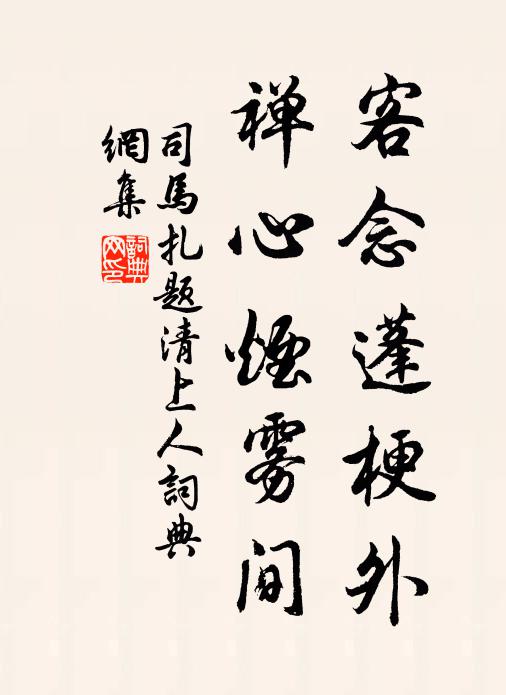 客念蓬梗外
禅心煙雾间
司馬扎题清上人詞典
網集
詞典
网印